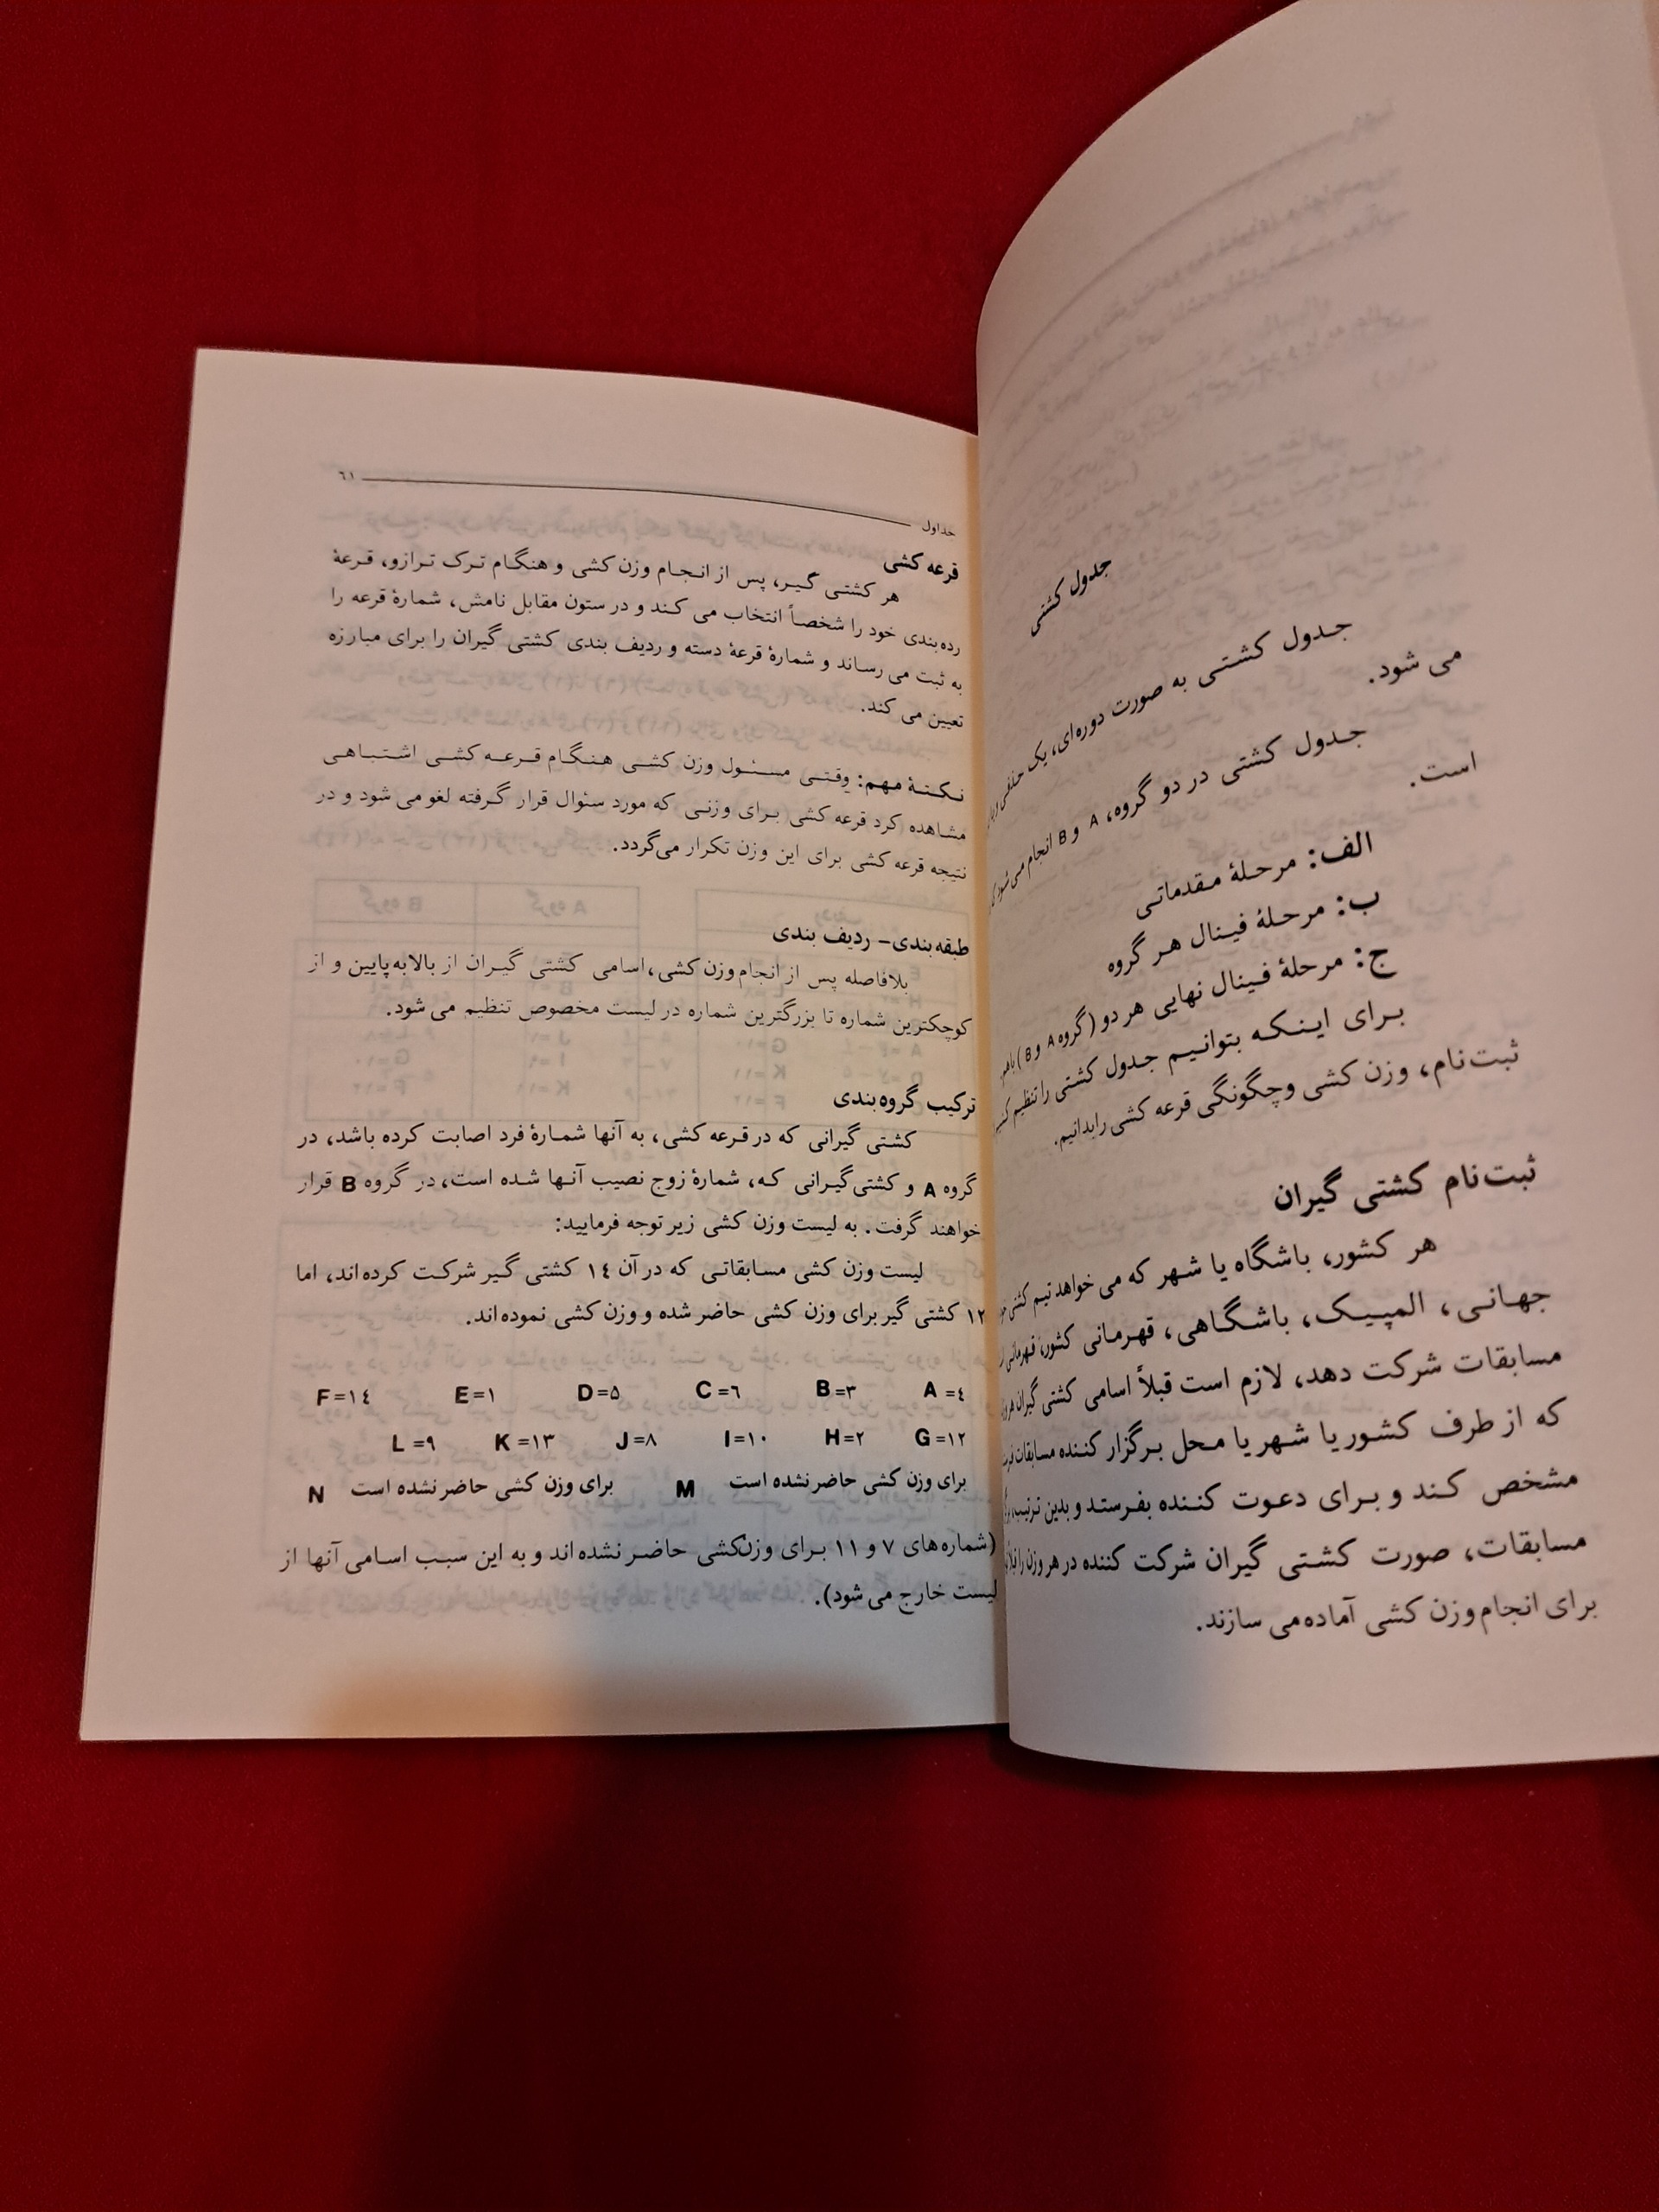 جدول کشتی
جدول کشتی به صورت دوره‌ای، یک حذفی
می شود.
جدول کشتی در دو گروه، A و B انجام می‌شود
است.
الف: مرحلهٔ مقدماتی
ب: مرحلهٔ فینال هر گروه
ج: مرحلهٔ فینال نهایی هر دو (گروه A و B) باهم
برای اینکه بتوانیم جدول کشتی را تنظیم کنیم
ثبت نام، وزن کشی و چگونگی قرعه کشی را بدانیم.
ثبت نام کشتی گیران
هر کشور، باشگاه یا شهر که می خواهد تیم کشتی
جهانی، المپیک، باشگاهی، قهرمانی کشور، قهرمانی
مسابقات شرکت دهد، لازم است قبلاً اسامی کشتی گیران هر وزن
که از طرف کشور یا شهر یا محل برگزار کننده مسابقات
مشخص کند و برای دعوت کننده بفرستد و بدین ترتیب،
مسابقات، صورت کشتی گیران شرکت کننده در هر وزن را
برای انجام وزن کشی آماده می سازند.
جداول ٦١
قرعه کشی
هر کشتی گیر، پس از انجام وزن کشی و هنگام ترک ترازو، قرعهٔ
رده بندی خود را شخصاً انتخاب می کند و در ستون مقابل نامش، شمارهٔ قرعه را
به ثبت می رساند و شمارهٔ قرعهٔ دسته و ردیف بندی کشتی گیران را برای مبارزه
تعیین می کند.
نکتهٔ مهم: وقتی مسئول وزن کشی هنگام قرعه کشی اشتباهی
مشاهده کرد قرعه کشی برای وزنی که مورد سئوال قرار گرفته لغو می شود و در
نتیجه قرعه کشی برای این وزن تکرار می‌گردد.
طبقه بندی- ردیف بندی
بلافاصله پس از انجام وزن کشی، اسامی کشتی گیران از بالا به پایین و از
کوچکترین شماره تا بزرگترین شماره در لیست مخصوص تنظیم می شود.
ترکیب گروه بندی
کشتی گیرانی که در قرعه کشی، به آنها شمارهٔ فرد اصابت کرده باشد، در
گروه A و کشتی گیرانی که، شمارهٔ زوج نصیب آنها شده است، در گروه B قرار
خواهند گرفت. به لیست وزن کشی زیر توجه فرمایید:
لیست وزن کشی مسابقاتی که در آن ١٤ کشتی گیر شرکت کرده اند، اما
١٢ کشتی گیر برای وزن کشی حاضر شده و وزن کشی نموده اند.
A =٤ B =٣ C =٦ D=٥ E=١ F=١٤
G=١٢ H=٢ I=١٠ J=٨ K=١٣ L =٩
برای وزن کشی حاضر نشده است M برای وزن کشی حاضر نشده است N
(شماره های ٧ و ١١ برای وزن‌کشی حاضر نشده اند و به این سبب اسامی آنها از
لیست خارج می شود).